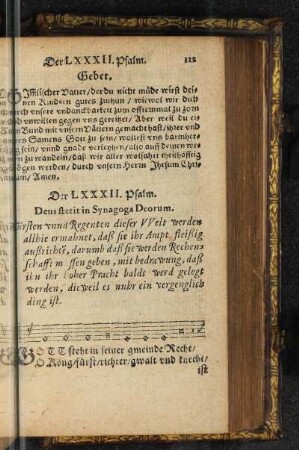 Der LXXXII. Psalm. 122
Gebet.
Himlischer Vatter / der du nicht müde wirst dei-
nen Kindern gutes zuthun / wiewol wir dich
durch vnsere vndanckbarkeit zum offtermal zu zorn
vnd vnwillen gegen vns gereitzet / Aber weil du ei-
nen Bund mit vnsern Vättern gemacht hast / ihrer vnd
jhres Samens Gott zu sein / wollest vns barmher-
tzig sein / vnd gnade verleyhen / also auff deinen we-
gen zu wandeln / daß wir aller wolfahrt theilhafftig
mögen werden / durch vnsern Herrn Jhesum Chri-
stum / Amen.
Der LXXXII. Psalm.
Deus stetit in Synagoga Deorum.
Fürsten vnnd Regenten dieser VVelt werden
allhie ermahnet, daß sie ihr Ampt fleißig
außrichtē, darumb daß sie werden Rechen
schafft müssen geben, mit bedrewung, daß
ihn ihr hoher Pracht baldt werd gelegt
werden, dieweil es nuhr ein vergenglich
ding ist.
GOTT steht in seiner gmeinde Recht /
O König / fürst / richter / gwalt vnd knecht /
ist